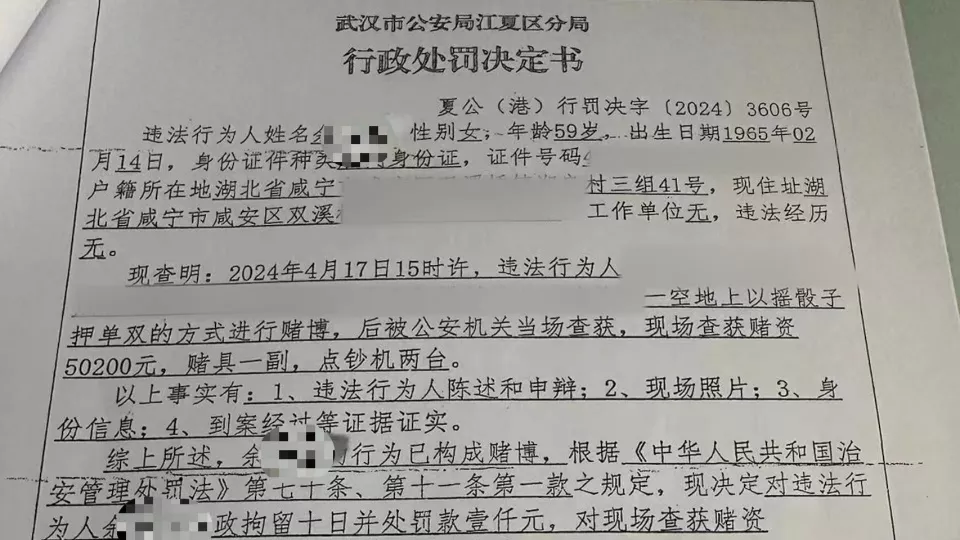 武汉市公安局江夏区分局
行政处罚决定书
夏公（港）行罚决字〔2024〕3606号
违法行为人姓名余 性别女，年龄59岁，出生日期1965年02
月14日，身份证件种类 身份证，证件号码4
户籍所在地湖北省咸宁 村三组41号，现住址湖
北省咸宁市咸安区双溪 工作单位无，违法经历
无。
现查明：2024年4月17日15时许，违法行为人
一空地上以摇骰子
押单双的方式进行赌博，后被公安机关当场查获，现场查获赌资
50200元，赌具一副，点钞机两台。
以上事实有：1、违法行为人陈述和申辩；2、现场照片；3、身
份信息；4、到案经过等证据证实。
综上所述，余 的行为已构成赌博，根据《中华人民共和国治
安管理处罚法》第七十条、第十一条第一款之规定，现决定对违法行
为人余 政拘留十日并处罚款壹仟元，对现场查获赌资